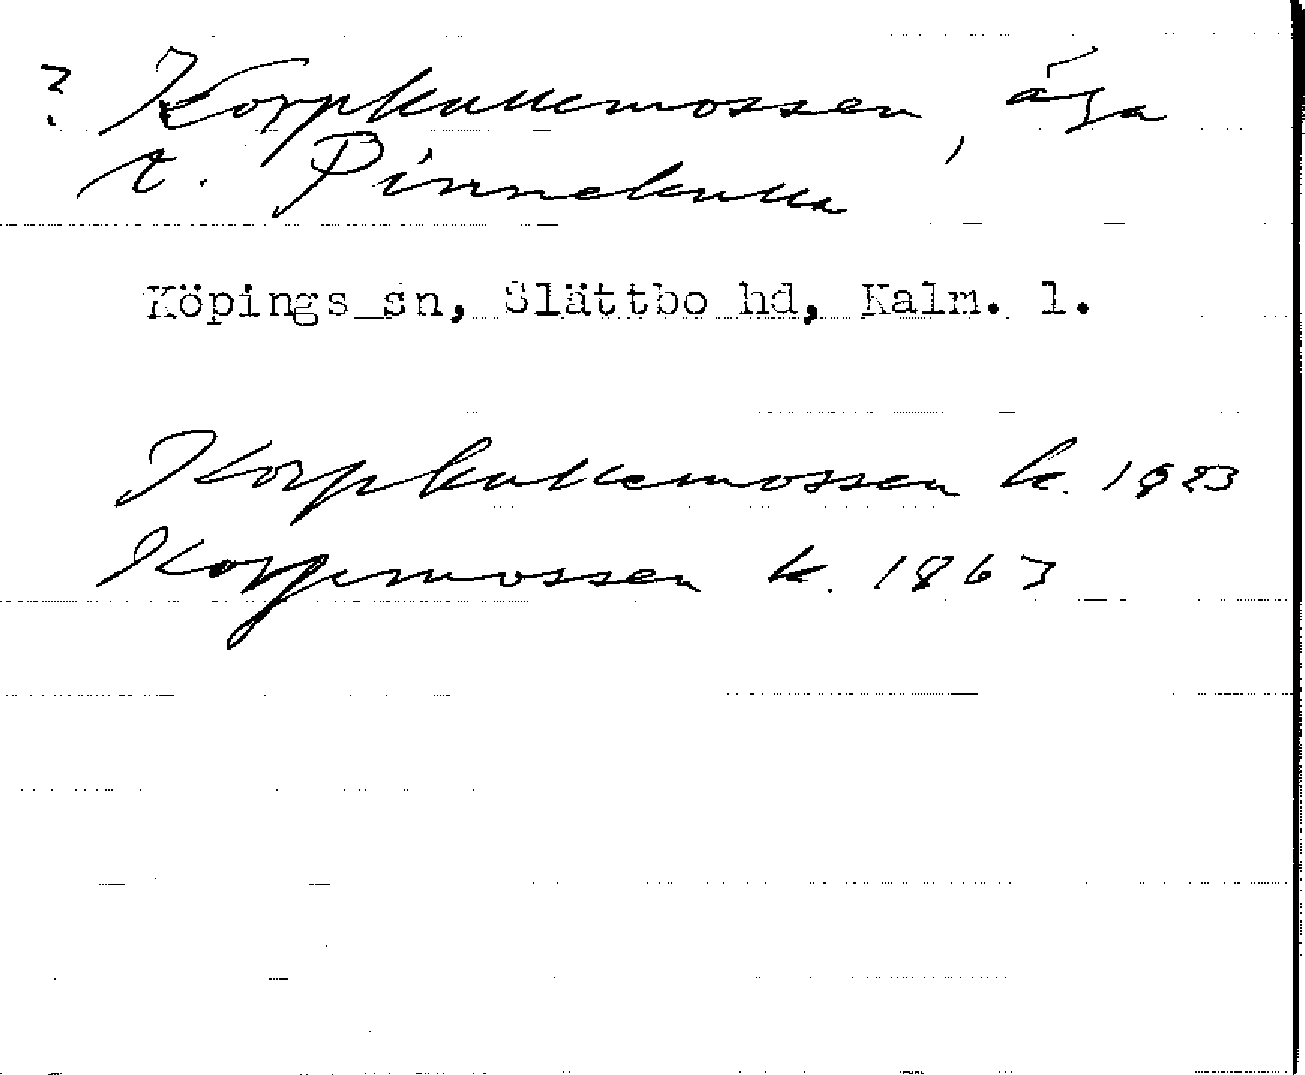 ? Korpkullemossen, äga
t. Pinnekulla
Köpings sn, Slättbo hd, Kalm. l.
Korpkullemossen k. 1823
Korpemossen k. 1863